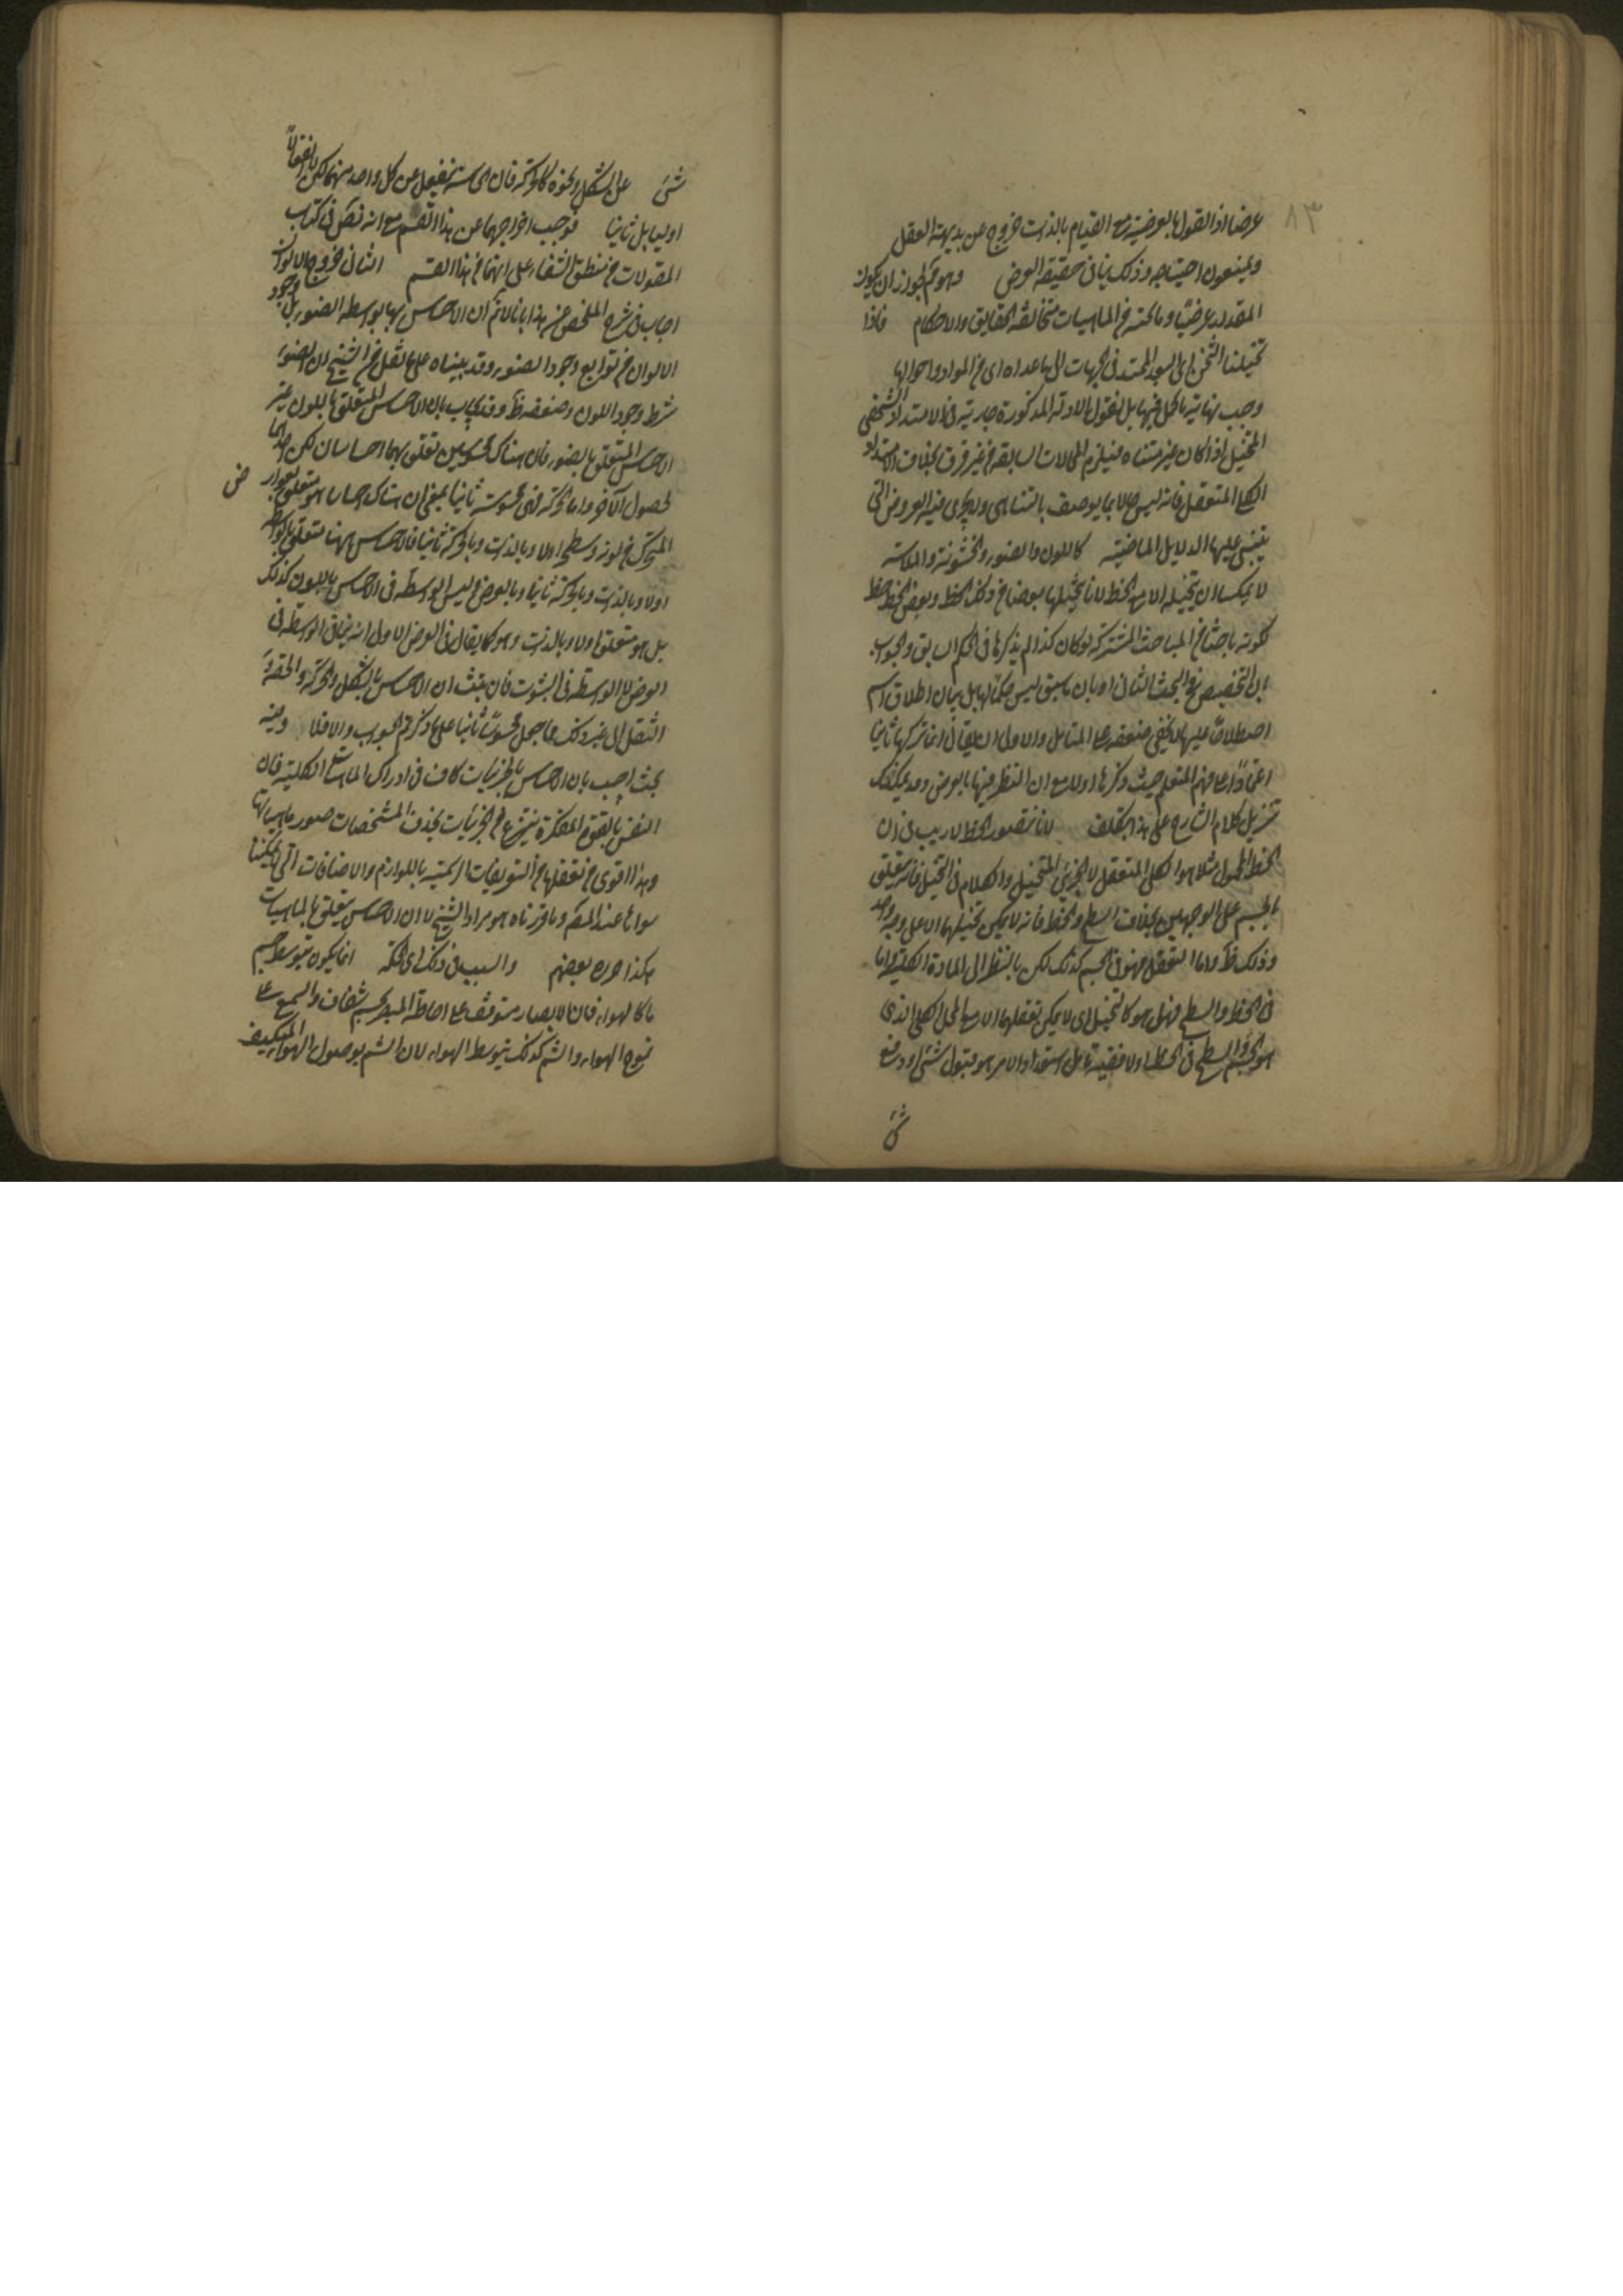 ٨٣
عرضا اذ القول بالعرضية مع القيام بالذات خروج عن بديهة العقل
ويمنعون احتياجه وذلك ينافى حقيقة العرض وهو لجواز ان يكون
المقدار عرضيا وما تحته من الماهيات متخالفة الحقايق والاحكام فاذا
تخيلنا الثخن اى البعد الممتد فى الجهات الى ما عداه اى من المواد واحوالها
وجب نهايته بل نقول الادلة المذكورة جارية فى الامتداد الشخصى
المتخيل اذا كان غير متناه فيلزم المحالات السابقة من غير فرق بخلاف الامتداد
الكلى المتعقل فانه ليس مما يوصف بالتناهى ولا يجرى فيه العروض التى
يبتنى عليها الدلايل الماضية كاللون والضوء والخشونة والملاسة
لا يمكنا ان نتخيله الا مع الخط لانا
لكونه باحثا من المباحث المشتركة لو كان كذا لم يذكرها فى الحكم السابق والجواب
ان التخصيص فى البحث الثانى او بان ما سبق ليس حكما لها بل بيان اطلاق اسم
اصطلاحا عليها لا يخفى ضعفه على المتأمل والاولى ان يقال انما تركها ثانيا
اعتمادا على فهم المتعلم حيث ذكرها اولا مع ان النظر فيها بالعرض وقد يمكنك
تنزيل كلام الشارح على هذا بتكلف لانا نتصور الخط لا ريب فى ان
الخط المحمول مثلا هو الكلى المتعقل لا الجزئى المتخيل والكلام فى التخيل فانه يتعلق
بالجسم على الوجهين بخلاف السطح والخط فانه لا يمكن تخيلهما الا على وجه واحد
وذلك ظ واما التعقل فهو فى الجسم كذلك لكن بالنظر الى المادة الكلية واما
فى الخط والسطح فهل هو كالتخيل اى لا يمكن تعقلهما الا مع المحل الكلى الذى
هو الجسم والسطح فى الخط اولا ففيه تأمل استعداد الامر هو قبول شئ او دفع
شئ
شئ على الشكل ونحوه كالحركة فان الحاسة تنفعل عن كل واحد منهما لكن لا انفعالا
اوليا بل ثانيا فوجب اخراجهما عن هذا القسم مع انه نص فى كتاب
المقولات من منطق الشفاء على انهما من هذا القسم الثانى خروج الالوان
اجاب فى شرح الملخص عن هذا بانا لا نم ان الاحساس بها بواسطة الضوء بل وجود
الالوان من توابع وجود الضوء وقد بيناه على ما نقل من الشيخ ان الضوء
شرط وجود اللون وضعفه ظ وقد يجاب بان الاحساس المتعلق باللون غير
الاحساس المتعلق بالضوء فان هناك محسوسين تعلق بهما احساسان لكن احدهما
لحصول الآخر واما الحركة فهى محسوسة ثانيا بمعنى ان هناك احساسا هو متعلق
ض
المتحرك من لونه وسطحه اولا وبالذات وبالحركة ثانيا فالاحساس ههنا متعلق بالواسطة
اولا وبالذات وبالحركة ثانيا وبالعرض وليس الواسطة فى الاحساس باللون كذلك
بل هو متعلق اولا وبالذات وهو كما يقال فى العرض الاولى انه ينافى الواسطة فى
العروض لا الواسطة فى الثبوت فان ثبت ان الاحساس بالشكل والحركة والخفة و
الثقل الى غير ذلك مما جعل محسوسا ثانيا على ما ذكر تم الجواب والا فلا وفيه
بحث اجيب بان الاحساس بالجزئيات كاف فى ادراك الماهيات الكلية فان
النفس بالقوة المفكرة ينتزع من الجزئيات بحذف المشخصات صور ماهياتها
وهذا اقوى من تعقلها من التعريفات الرسمية باللوازم والاضافات التى لا يمكننا
سواها عند المص وما قررناه هو مراد الشيخ لا ان الاحساس يتعلق بالماهيات
هكذا حرره بعضهم والسبب فى ذلك اى انما يكون بتوسط جسم
ما كالهواء فان الابصار متوقف على احاطة المبصر بجسم شفاف والسمع على
تموج الهواء والشم كذلك بتوسط الهواء لان الشم بوصول الهواء المتكيف